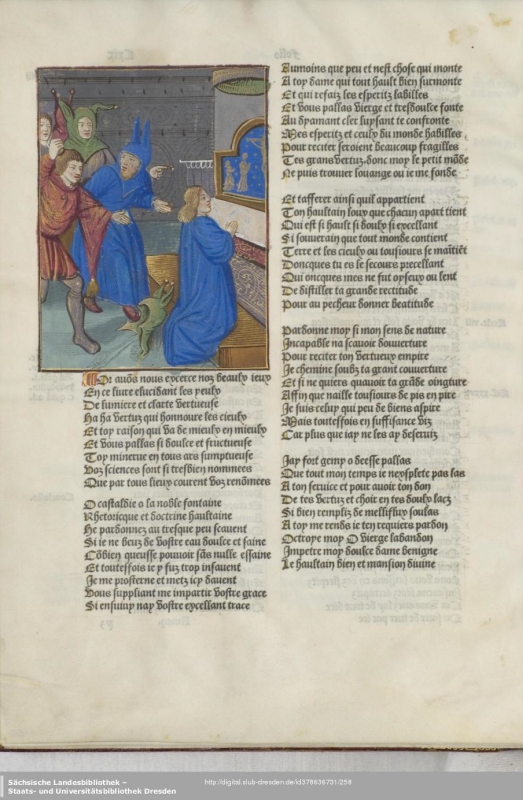 Or avõs nous exerce noz beaulx ieux
En ce liure elucidant les yeulx
De lumiere et clarte vertueuse
Ha ha vertuz qui honnoure les cieulx
Et toy raison qui va de mieulx en mieulx
Et vous pallas si doulce et fructueuse
Toy minerue en tous ars sumptueuse
Voz sciences sont si tresbien nommees
Que par tous lieux courent voz renõmees
O castaldie o la noble fontaine
Rhetoricque et doctrine haultaine
He pardonnez au tresque peu scauent
Si ie ne beuz de vostre eau doulce et saine
Cõbien queusse pouuoir sãs nulle essaine
Et toutesfois ie y fuz trop insauent
Je me prosterne et metz icy dauent
Vous suppliant me impartir vostre grace
Si ensuiuy nay vostre excellant trace
Aumoins que peu et nest chose qui monte
A toy dame qui tout hault bien surmonte
Et qui refaiz les esperitz labilles
Et vous pallas vierge et tresdoulce fonte
Au dyamant cler luysant te confronte
Mes esperitz et ceulx du monde habilles
Pour reciter seroient beaucoup fragilles
Tes grans vertuz, donc moy le petit mõde
Ne puis trouuer louange ou ie me fonde
Et tafferer ainsi quil appartient
Ton haultain loux que chacun apart tient
Qui est si hault si doulx si excellant
Si souuerain que tout monde contient
Terre et les cieulx ou tousiours se maĩtiẽt
Doncques tu es le secours precellant
Qui oncques mes ne fut oyseux ou lent
De distiller ta grande rectitude
Pour au pecheur donner beatitude
Pardonne moy si mon sens de nature
Incapable na scauoir douuerture
Pour reciter ton vertueux empire
Je chemine soubz ta grant couuerture
Et si ne quiers quauoir ta grãde oingture
Affin que naille tousiours de pis en pire
Je suis celuy qui peu de biens aspire
Mais toutesfois en suffisance viz
Car plus que iay ne les ay desseruiz
Jay fort gemy o deesse pallas
Que tout mon temps ie nexplete pas las
A ton seruice et pour auoir ton don
De tes vertuz et choit en tes doulx lacz
Si bien rempliz de melliflux soulas
A toy me rends ie ten requiers pardon
Octroye moy O vierge labandon
Impetre moy doulce dame benigne
Le haultain bien et mansion diuine
Sächsische Landesbibliothek –
Staats- und Universitätsbibliothek Dresden
http://digital.slub-dresden.de/id378636731/258